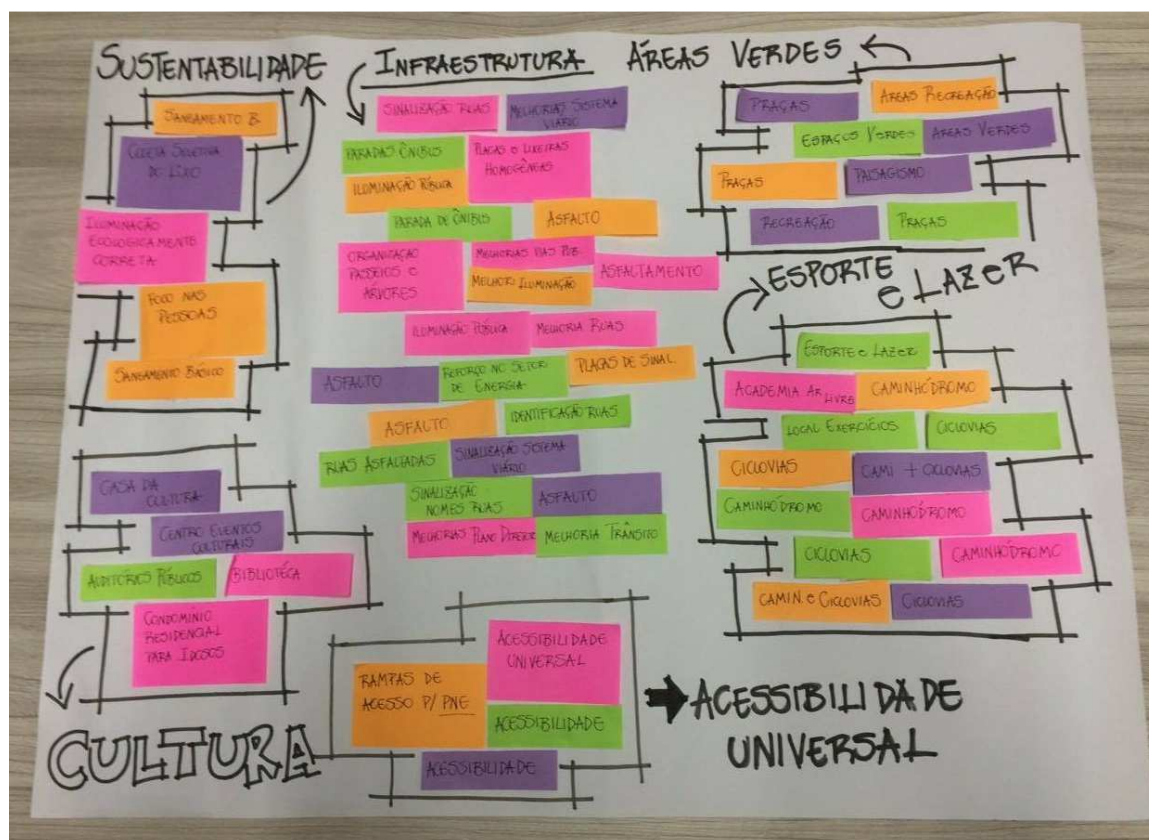 SUSTENTABILIDADE
SANEAMENTO B.
COLETA SELETIVA
DO LIXO
ILUMINAÇÃO
ECOLOGICAMENTE
CORRETA
FOCO NAS
PESSOAS
SANEAMENTO BÁSICO
INFRAESTRUTURA
SINALIZAÇÃO RUAS
MELHORIAS SISTEMA
VIÁRIO
PARADAS ÔNIBUS
PLACAS E LIXEIRAS
HOMOGÊNEAS
ILUMINAÇÃO PÚBLICA
PARADA DE ÔNIBUS
ASFALTO
ORGANIZAÇÃO
PASSEIOS E
ÁRVORES
MELHORIAS VIAS PÚB.
MELHOR ILUMINAÇÃO
ASFALTAMENTO
ILUMINAÇÃO PÚBLICA
MELHORIA RUAS
ASFALTO
REFORÇO NO SETOR
DE ENERGIA
PLACAS DE SINAL.
ASFALTO
IDENTIFICAÇÃO RUAS
RUAS ASFALTADAS
SINALIZAÇÃO SISTEMA
VIÁRIO
SINALIZAÇÃO
NOMES RUAS
ASFALTO
MELHORIAS PLANO DIRETOR
MELHORIA TRÂNSITO
ÁREAS VERDES
PRAÇAS
ÁREAS RECREAÇÃO
ESPAÇOS VERDES
ÁREAS VERDES
PRAÇAS
PAISAGISMO
RECREAÇÃO
PRAÇAS
ESPORTE
e LAZER
ESPORTE e LAZER
ACADEMIA AR LIVRE
CAMINHÓDROMO
LOCAL EXERCÍCIOS
CICLOVIAS
CICLOVIAS
CAMI + CICLOVIAS
CAMINHÓDROMO
CAMINHÓDROMO
CICLOVIAS
CAMINHÓDROMO
CAMIN. e CICLOVIAS
CICLOVIAS
CASA DA
CULTURA
CENTRO EVENTOS
CULTURAIS
AUDITÓRIOS PÚBLICOS
BIBLIOTÉCA
CONDOMÍNIO
RESIDENCIAL
PARA IDOSOS
CULTURA
ACESSIBILIDADE
UNIVERSAL
RAMPAS DE
ACESSO P/ PNE
ACESSIBILIDADE
ACESSIBILIDADE
ACESSIBILIDADE
UNIVERSAL